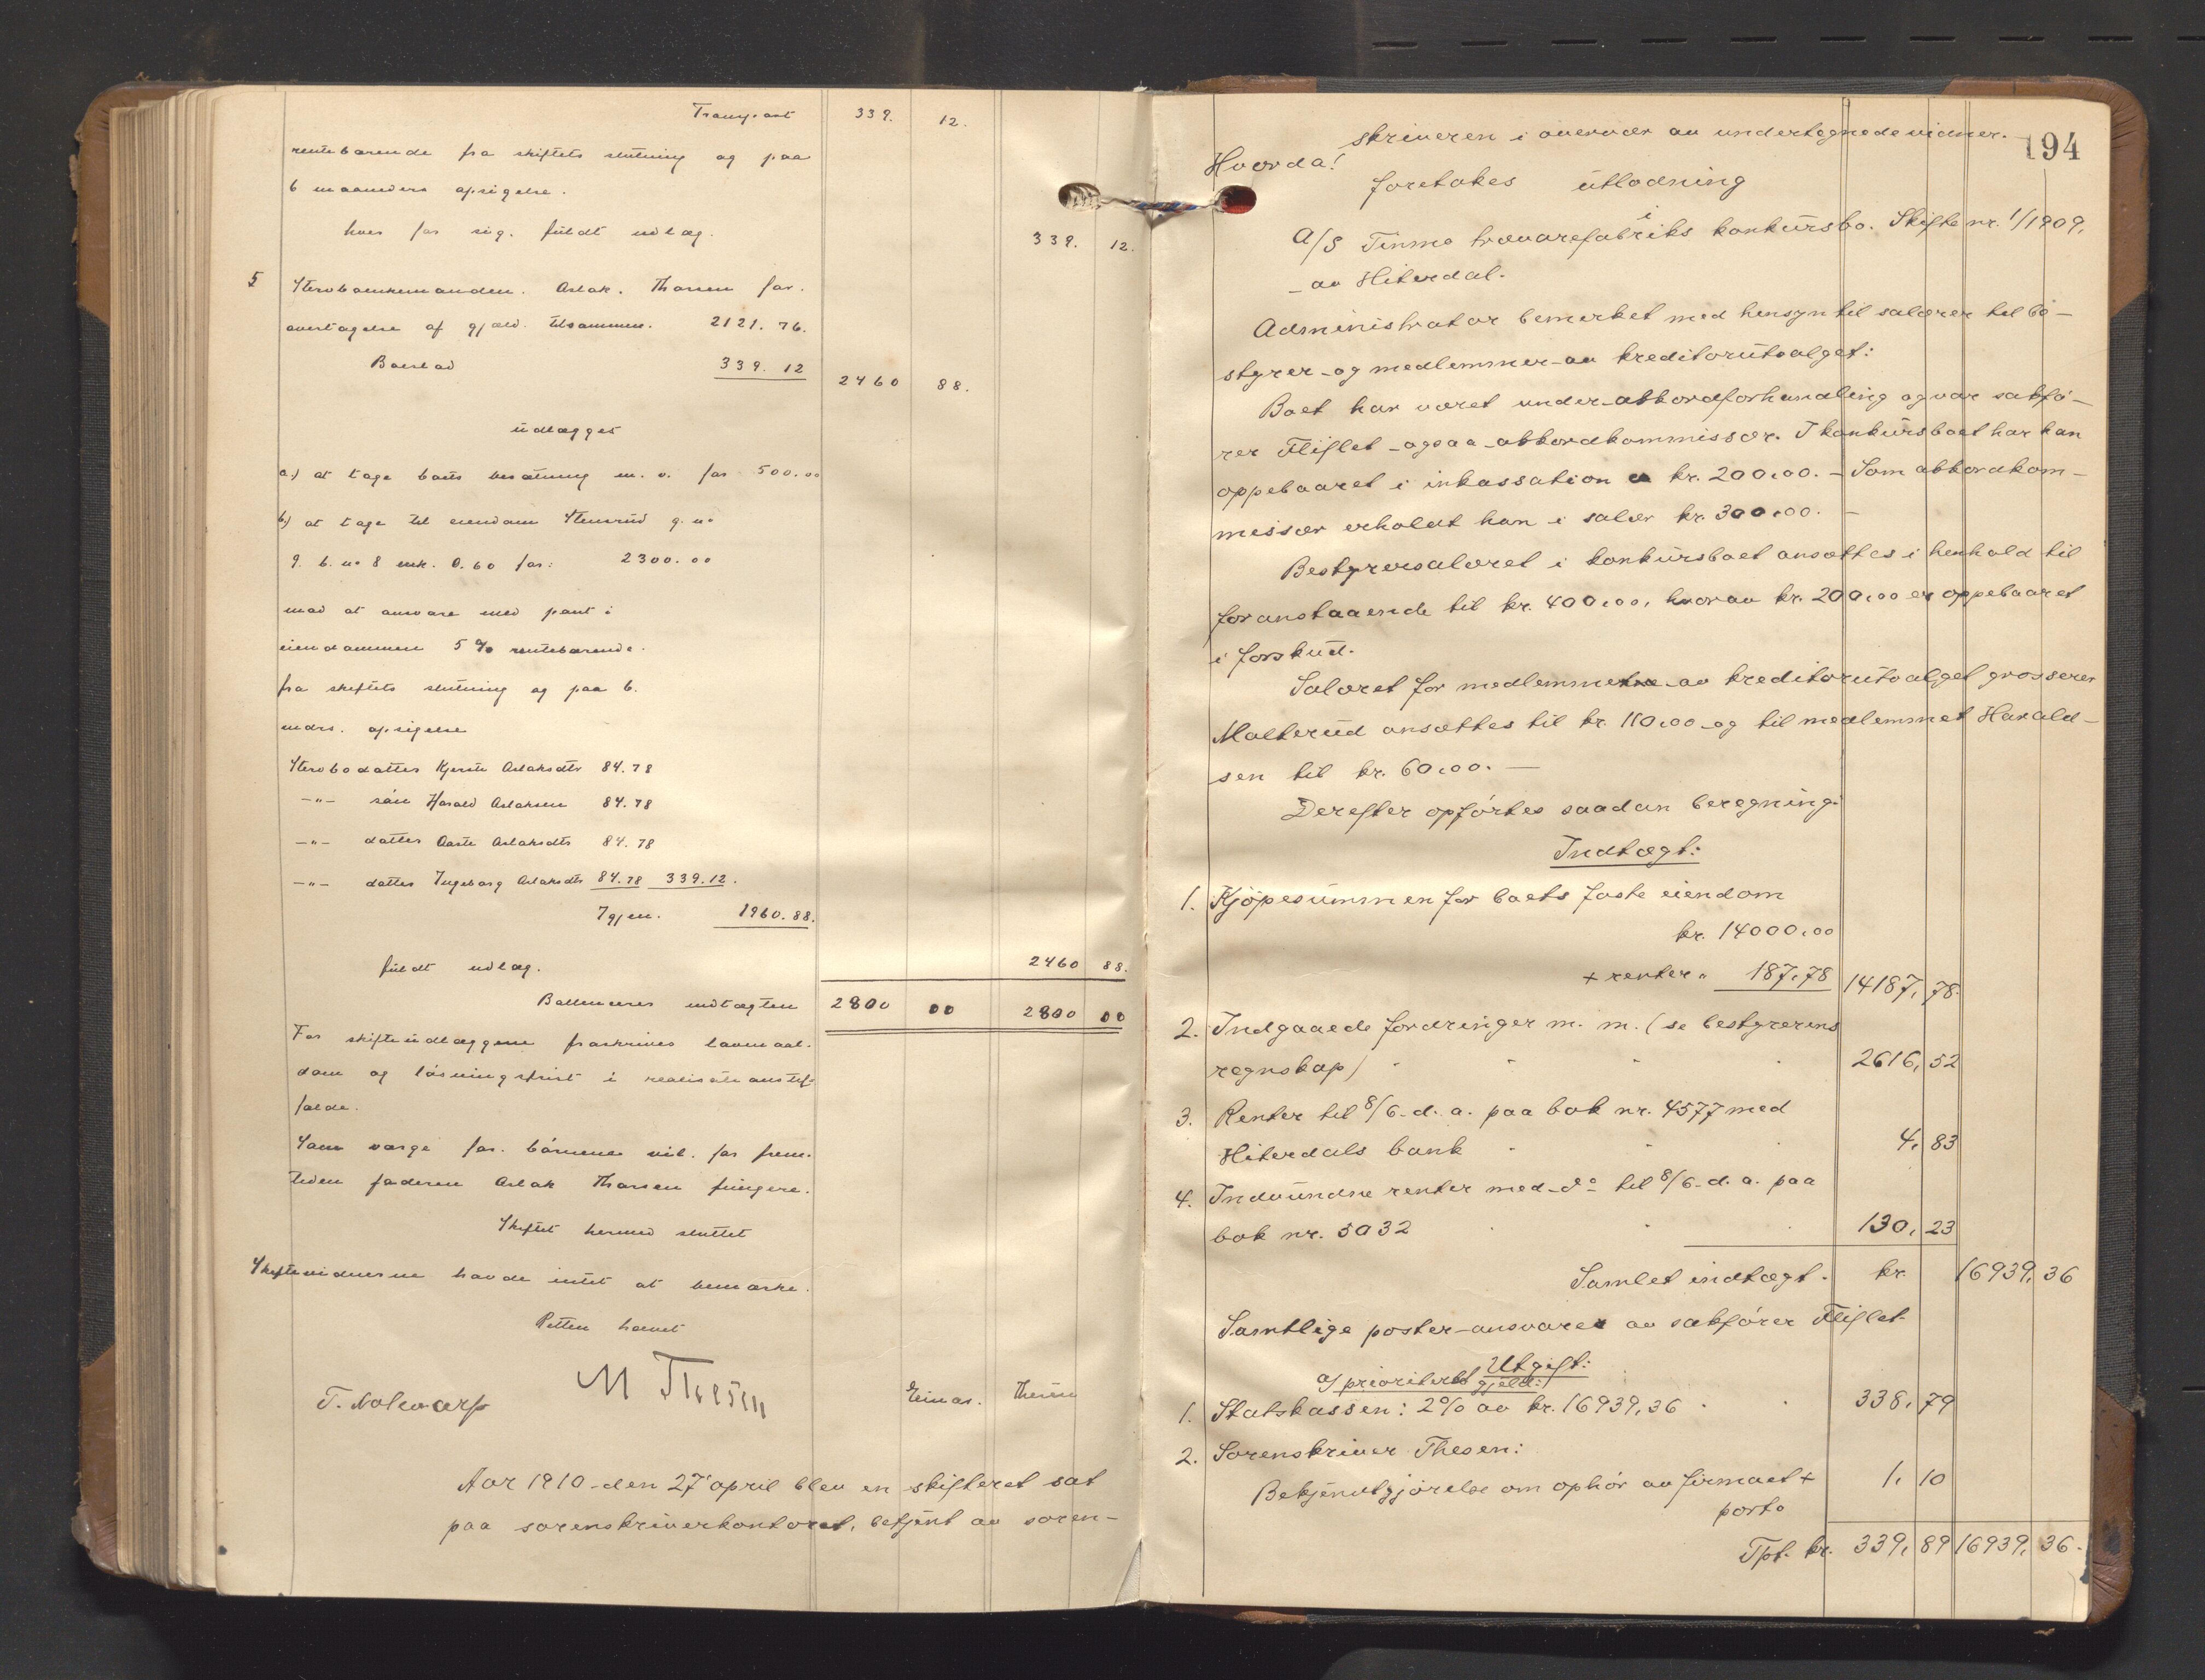 Transport 339. 12.
rentebærende fra skiftets slutning og paa
6 maaneders opsigelse.
hver for sig. fuldt udlæg. 339. 12.
5 Stervboenkemanden. Aslak. Thorsen for.
overtagelse af gjæld. tilsammen. 2121. 76.
Boeslod 339. 12 2460 88.
udlægges
a) at tage boets besætning m. v. for 500.00
b) at tage til eiendom Stensrud g. no
9. b. no 8 mk. 0.60 for: 2300.00
mod at ansvare med pant i
eiendommen 5 % rentebærende.
fra skiftets slutning og paa 6.
mdrs. opsigelse
Stervbodatter Kjersti Aslaksdtr 84.78
-"- søn Harald Aslaksen 84.78
-"- datter Aaste Aslaksdtr 84.78
-"- datter Ingeborg Aslaksdtr 84.78 339.12.
Igjen. 1960.88.
fuldt udlæg. 2460 88.
Ballancerer indtægten 2800 00 2800 00
For skifteudlæggene fraskrives lavmaal-
dom og løsningsfrist i realisationstil-
fælde.
Som værge for. børnene vil. for frem-
tiden faderen Aslak Thorsen fungere.
Skiftet hermed sluttet
Skiftevidnerne havde intet at bemærke.
Retten hævet
M Thesen
Einar. Thesen
Aar 1910 den 27' april blev en skifteret sat
paa sorenskriverkontoret, betjent av soren-
194
skriveren i overvær av undertegnede vidner.
Hvorda!
foretokes utlodning
i
A/S Tinnes trævarefabriks konkursbo. Skifte nr. 1/1909,
av Hiterdal.
Administrator bemerket med hensyn til salærer til bo-
styrer og medlemmer av kreditorutvalget:
Boet har været under akkordforhandling og var sakfø-
rer Fliflet ogsaa akkordkommissær. I konkursboet har han
oppebaaret i inkassation kr. 200.00. – Som akkordkom-
missær erholdt han i salær kr. 300.00. –
Bestyrersalæret i konkursboet ansættes i henhold til
foranstaaende til kr. 400.00, hvorav kr. 200.00 er oppebaaret
i forskud.
Salæret for medlemmene av kreditorutvalget grosserer
Malterud ansættes til kr. 110.00 og til medlemmet Harald-
sen til kr. 60.00. –
Derefter opførtes saadan beregning:
Indtægt:
1. Kjøpesummen for boets faste eiendom
kr. 14000.00
+ renter " 187,78 14187, 78.
2. Indgaaede fordringer m. m. (se bestyrerens
regnskap) 2616, 52
3. Renter til 8/6 d. a. paa bok nr. 4577 med
Hiterdals bank 4, 83
4. Indvundne renter med do til 8/6 d. a. paa
bok nr. 5032 130, 23
Samlet indtægt. kr. 16939, 36
Samtlige poster ansvares av sakfører Fliflet.
Utgift:
a) prioritert gjeld:
1. Statskassen: 2% av kr. 16939,36 338, 79
2. Sorenskriver Thesen:
Bekjendtgjørelse om ophør av firmaet + 1, 10
porto
Tpt. kr. 339, 89 16939, 36.